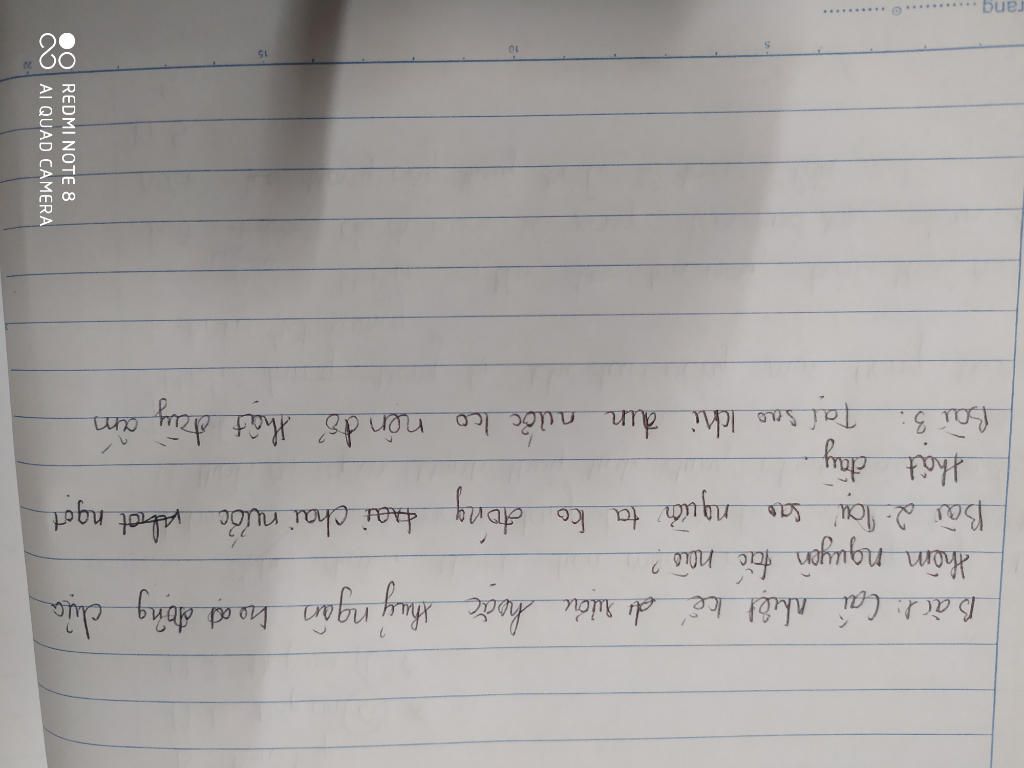 Bài 1: Cái nhiệt kế rượu hoặc thuỷ ngân hoạt động dựa
thêm nguyên tắc nào?
Bài 2: Tại sao người ta ko đóng chai nước ngọt
thật đầy.
Bài 3: Tại sao khi đun nước ko nên đổ thật đầy ấm
rang
5
10
15
20
REDMI NOTE 8
AI QUAD CAMERA